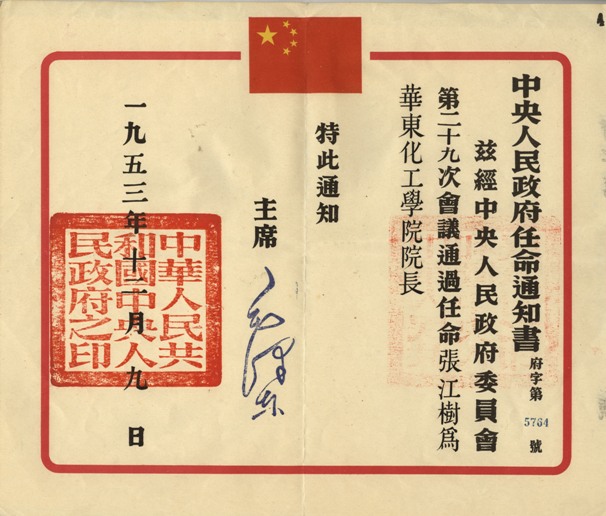 中央人民政府任命通知書
府字第5764號
茲經中央人民政府委員會
第二十九次會議通過任命張江樹為
華東化工學院院長
特此通知
主席
毛澤東
一九五三年十二月九日
中華人民共
和國中央人
民政府之印